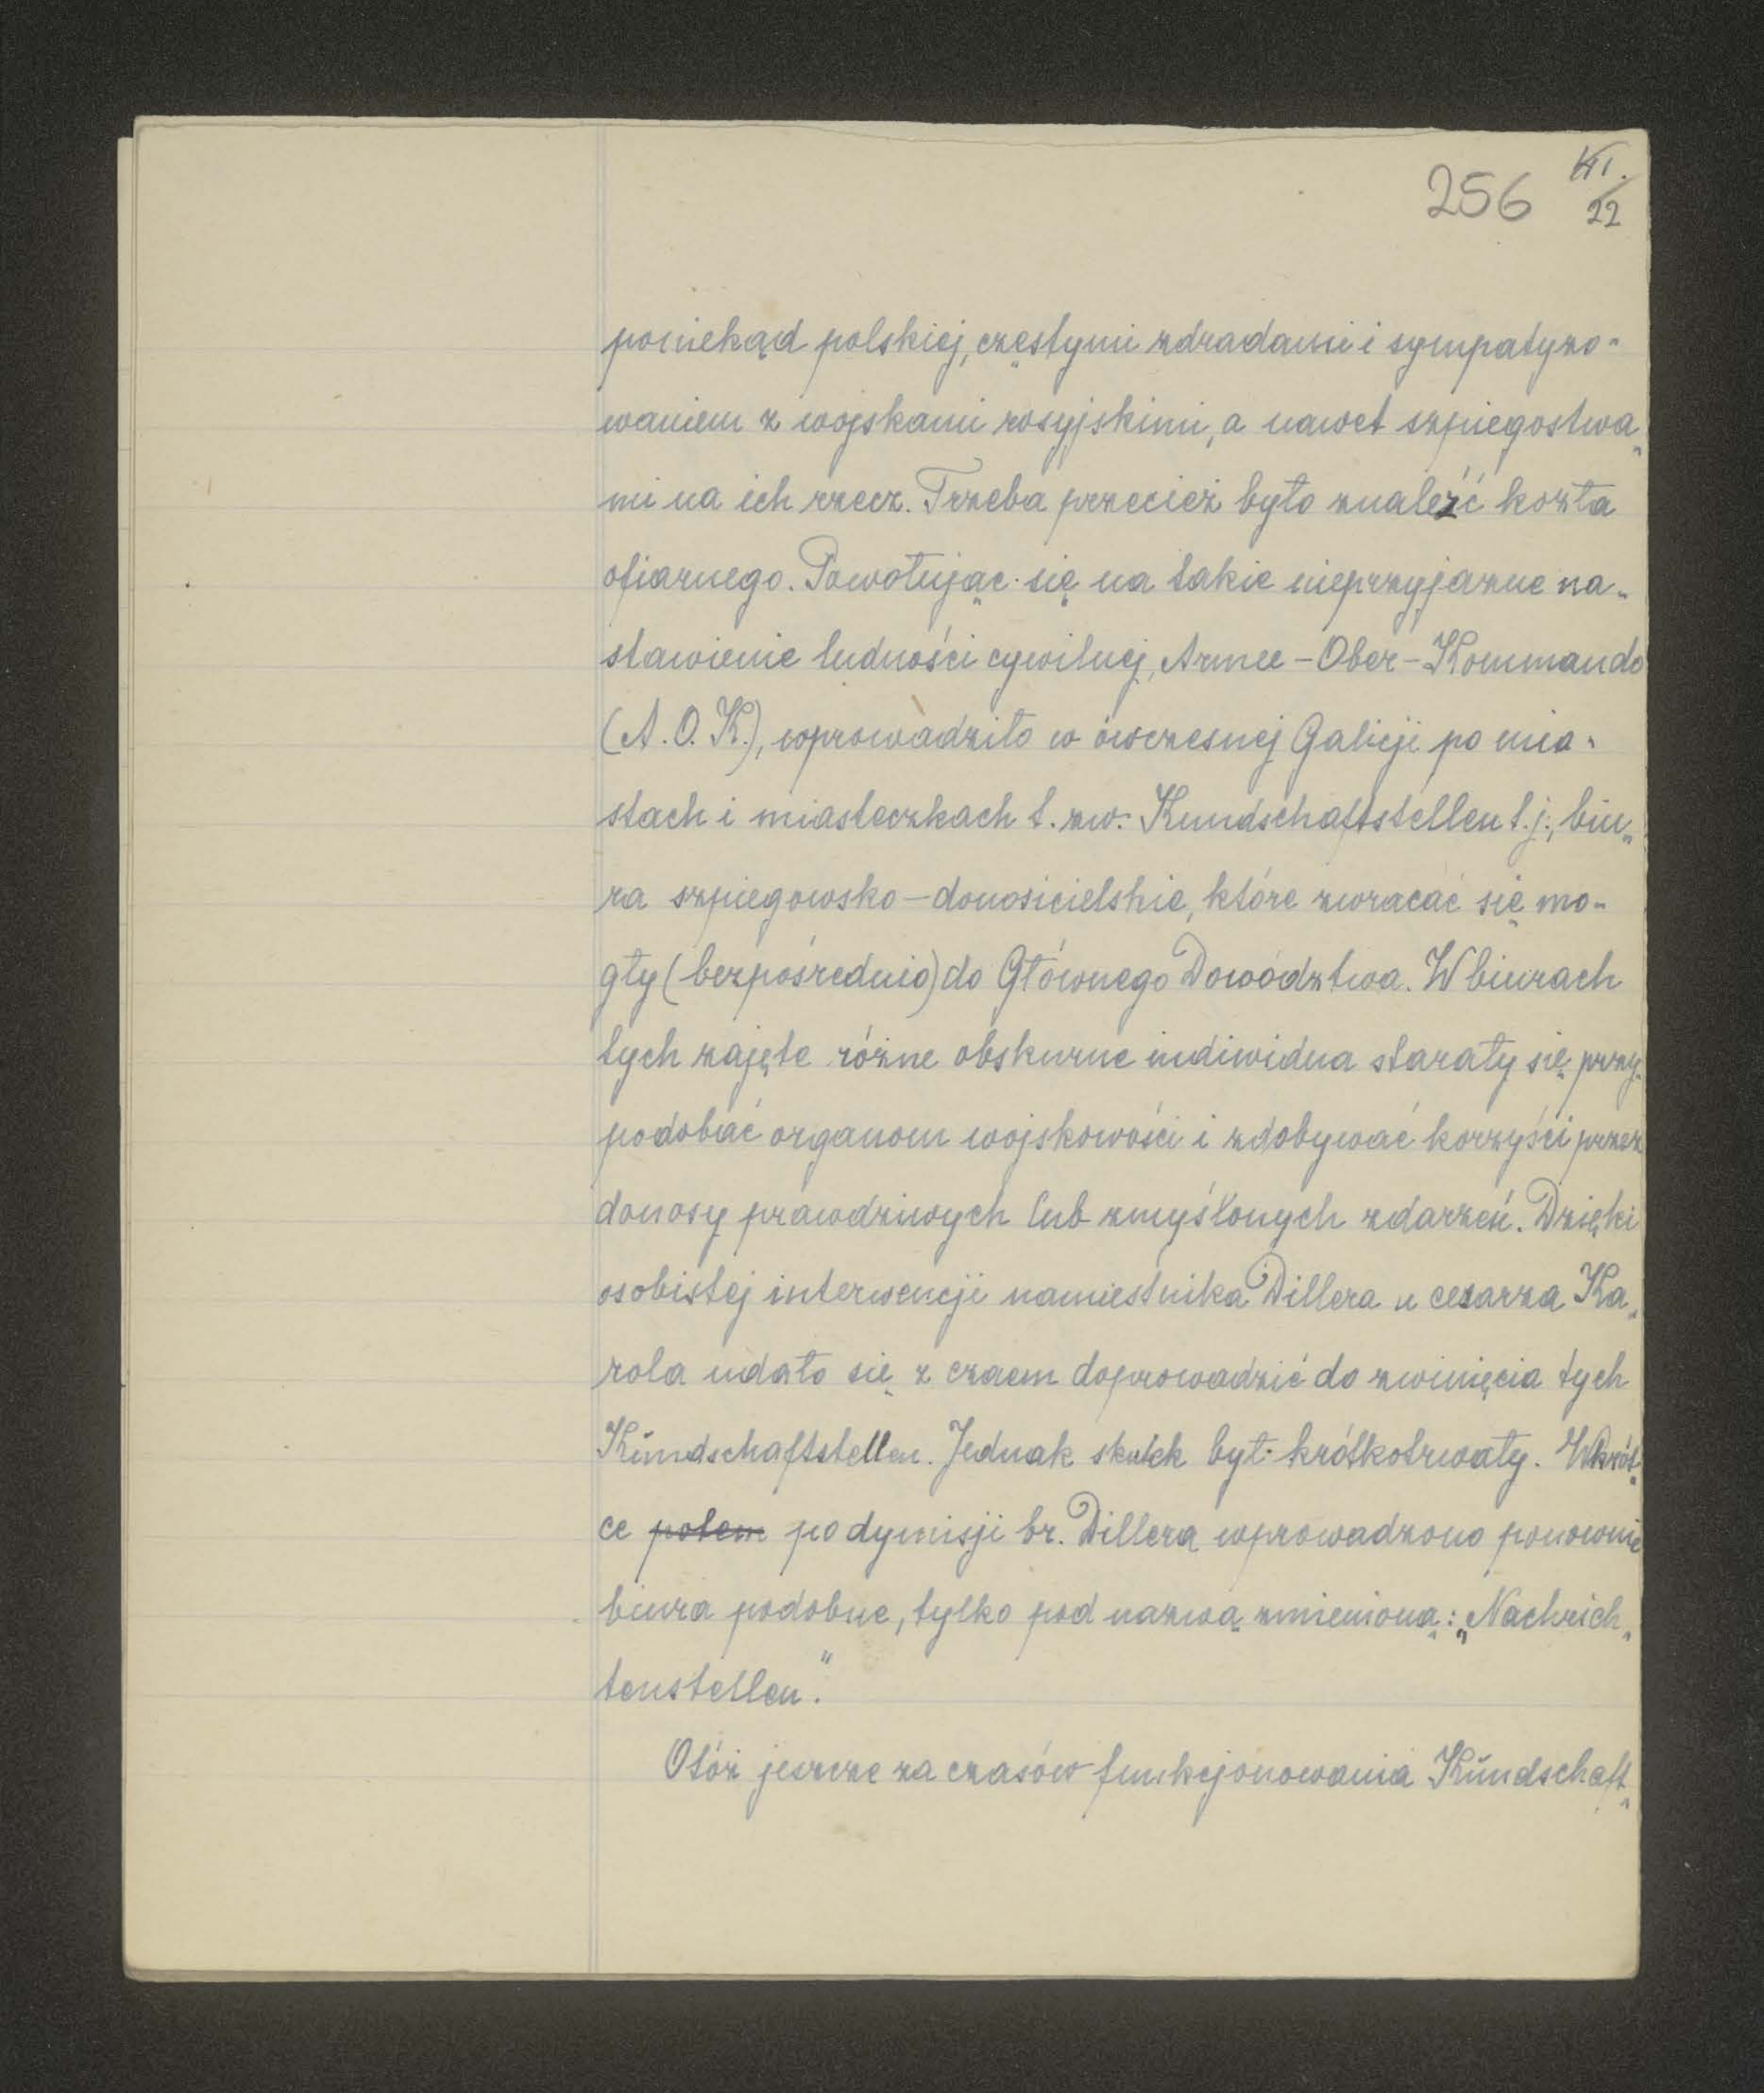 256 VII.
22
poniekąd polskiej, częstymi zdradami i sympatyzo-
waniem z wojskami rosyjskimi, a nawet szpiegostwa-
mi na ich rzecz. Trzeba przecież było znaleźć kozła
ofiarnego. Powołując się na takie nieprzyjazne na-
stawienie ludności cywilnej, Armee-Ober-Kommando
(A.O.K.), wprowadziło w ówczesnej Galicji po mia-
stach i miasteczkach t.zw. Kundschaftstellen t.j., biu-
ra szpiegowsko-donosicielskie, które zwracać się mo-
gły (bezpośrednio) do Głównego Dowództwa. W biurach
tych zajęte różne obskurne indiwidua starały się przy-
podobać organom wojskowości i zdobywać korzyści przez
donosy prawdziwych lub zmyślonych zdarzeń. Dzięki
osobistej interwencji namiestnika Dillera u cesarza Ka-
rola udało się z czaem doprowadzić do zwinięcia tych
Kŭndschaftstellen. Jednak skutek był krótkotrwały. Wkrót-
ce potem po dymisji br. Dillera wprowadzono ponownie
biura podobne, tylko pod nazwą zmienioną: „Nachrich-
tenstellen".
Otóż jeszcze za czasów funkcjonowania Kŭndschaft-